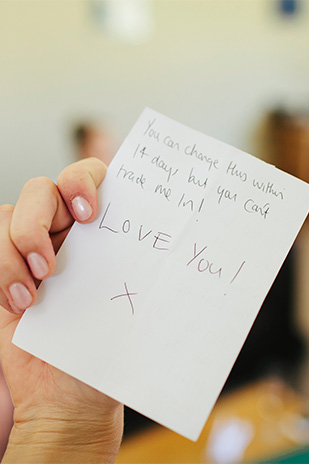 You can change this within
14 days but you can't
trade me in!
LOVE YOU!
X